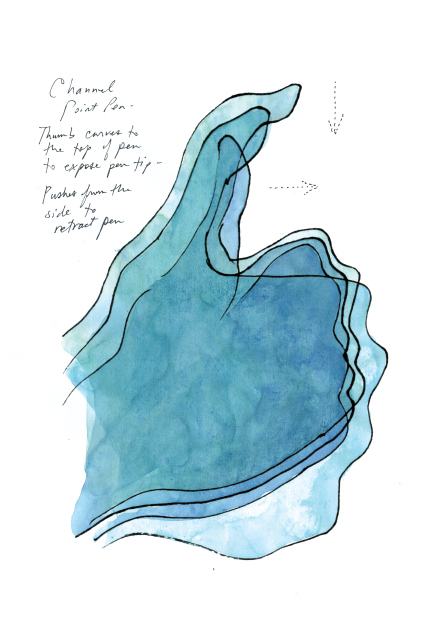 Channel
Point Pen-
Thumb curves to
the top of pen
to expose pen tip-
Pushes from the
side to
retract pen